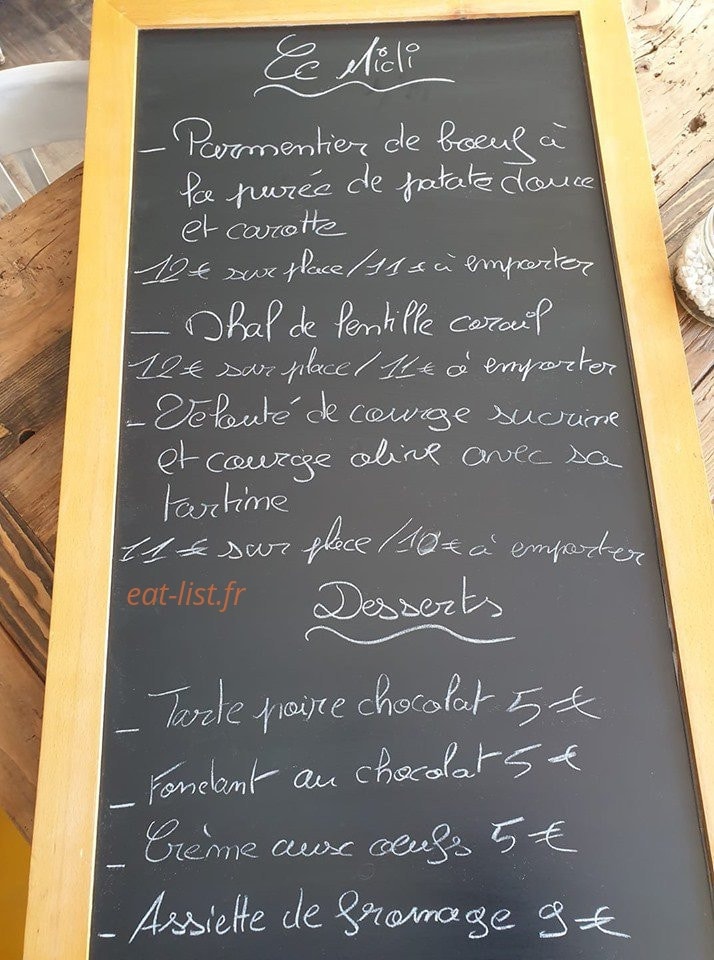 Ce Midi
- Parmentier de boeuf à
la purée de patate douce
et carotte
12€ sur place / 11€ à emporter
- Dhal de lentille corail
12€ sur place / 11€ à emporter
- Velouté de courge sucrine
et courge olive avec sa
tartine
11€ sur place / 10€ à emporter
eat-list.fr
Desserts
- Tarte poire chocolat 5€
- Fondant au chocolat 5€
- Crème aux oeufs 5€
- Assiette de fromage 9€